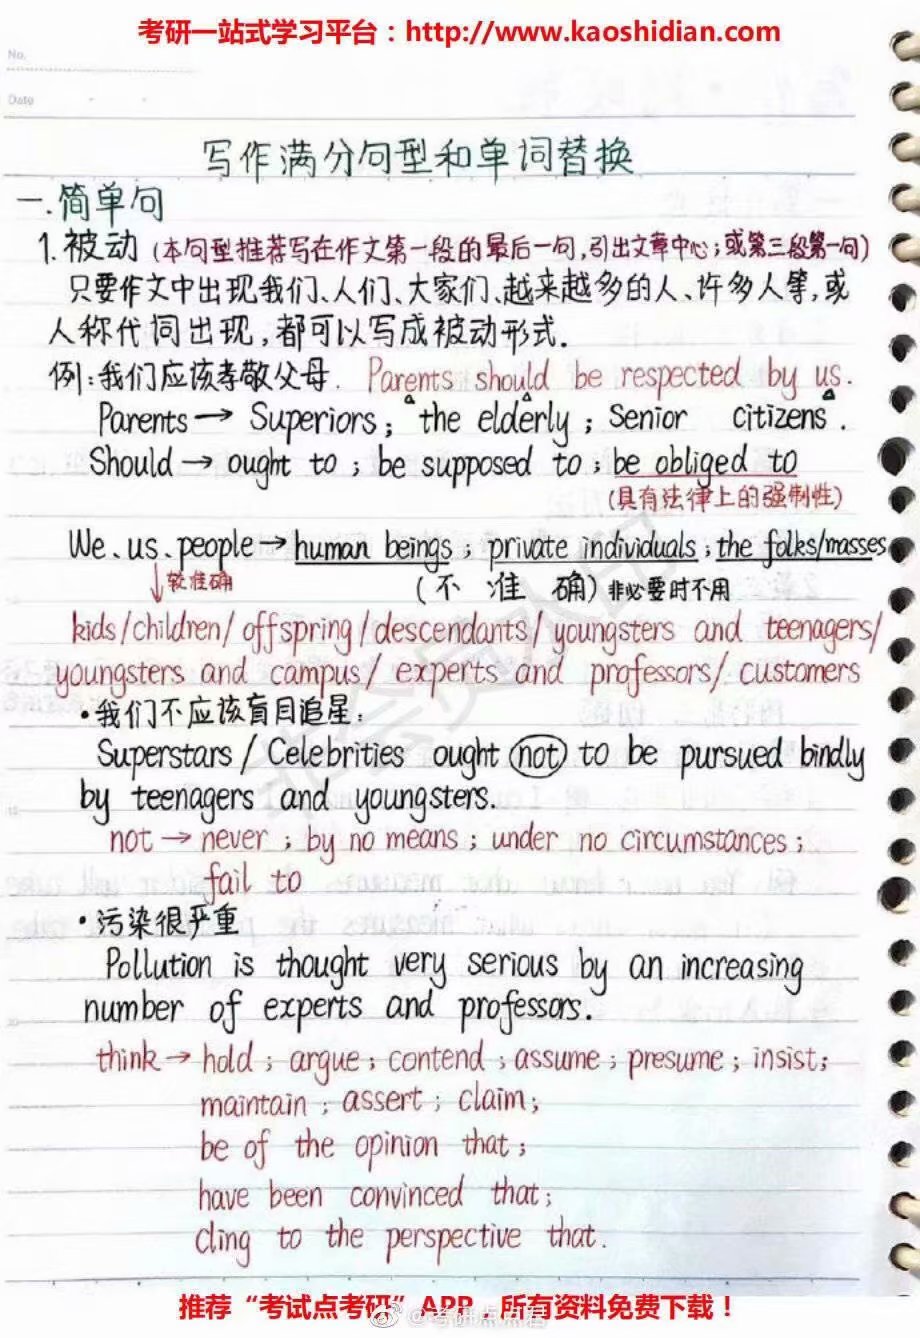 考研一站式学习平台：http://www.kaoshidian.com
No.
Date
写作满分句型和单词替换
一.简单句
1.被动（本句型推荐写在作文第一段的最后一句,引出文章中心;或第三段第一句）
只要作文中出现我们、人们、大家们、越来越多的人、许多人等,或
人称代词出现,都可以写成被动形式.
例:我们应该孝敬父母. Parents should be respected by us.
Parents→ Superiors; the elderly; Senior citizens.
Should→ ought to; be supposed to; be obliged to
(具有法律上的强制性)
We、us、people→human beings; private individuals; the folks/masses
↓较准确 (不准确) 非必要时不用
kids/children/offspring/descendants/youngsters and teenagers/
youngsters and campus/experts and professors/customers
·我们不应该盲目追星:
Superstars/Celebrities ought not to be pursued bindly
by teenagers and youngsters.
not→ never; by no means; under no circumstances;
fail to
·污染很严重
Pollution is thought very serious by an increasing
number of experts and professors.
think→ hold; argue; contend; assume; presume; insist;
maintain; assert; claim;
be of the opinion that;
have been convinced that;
cling to the perspective that.
推荐“考试点考研”APP，所有资料免费下载！
@考研点点君